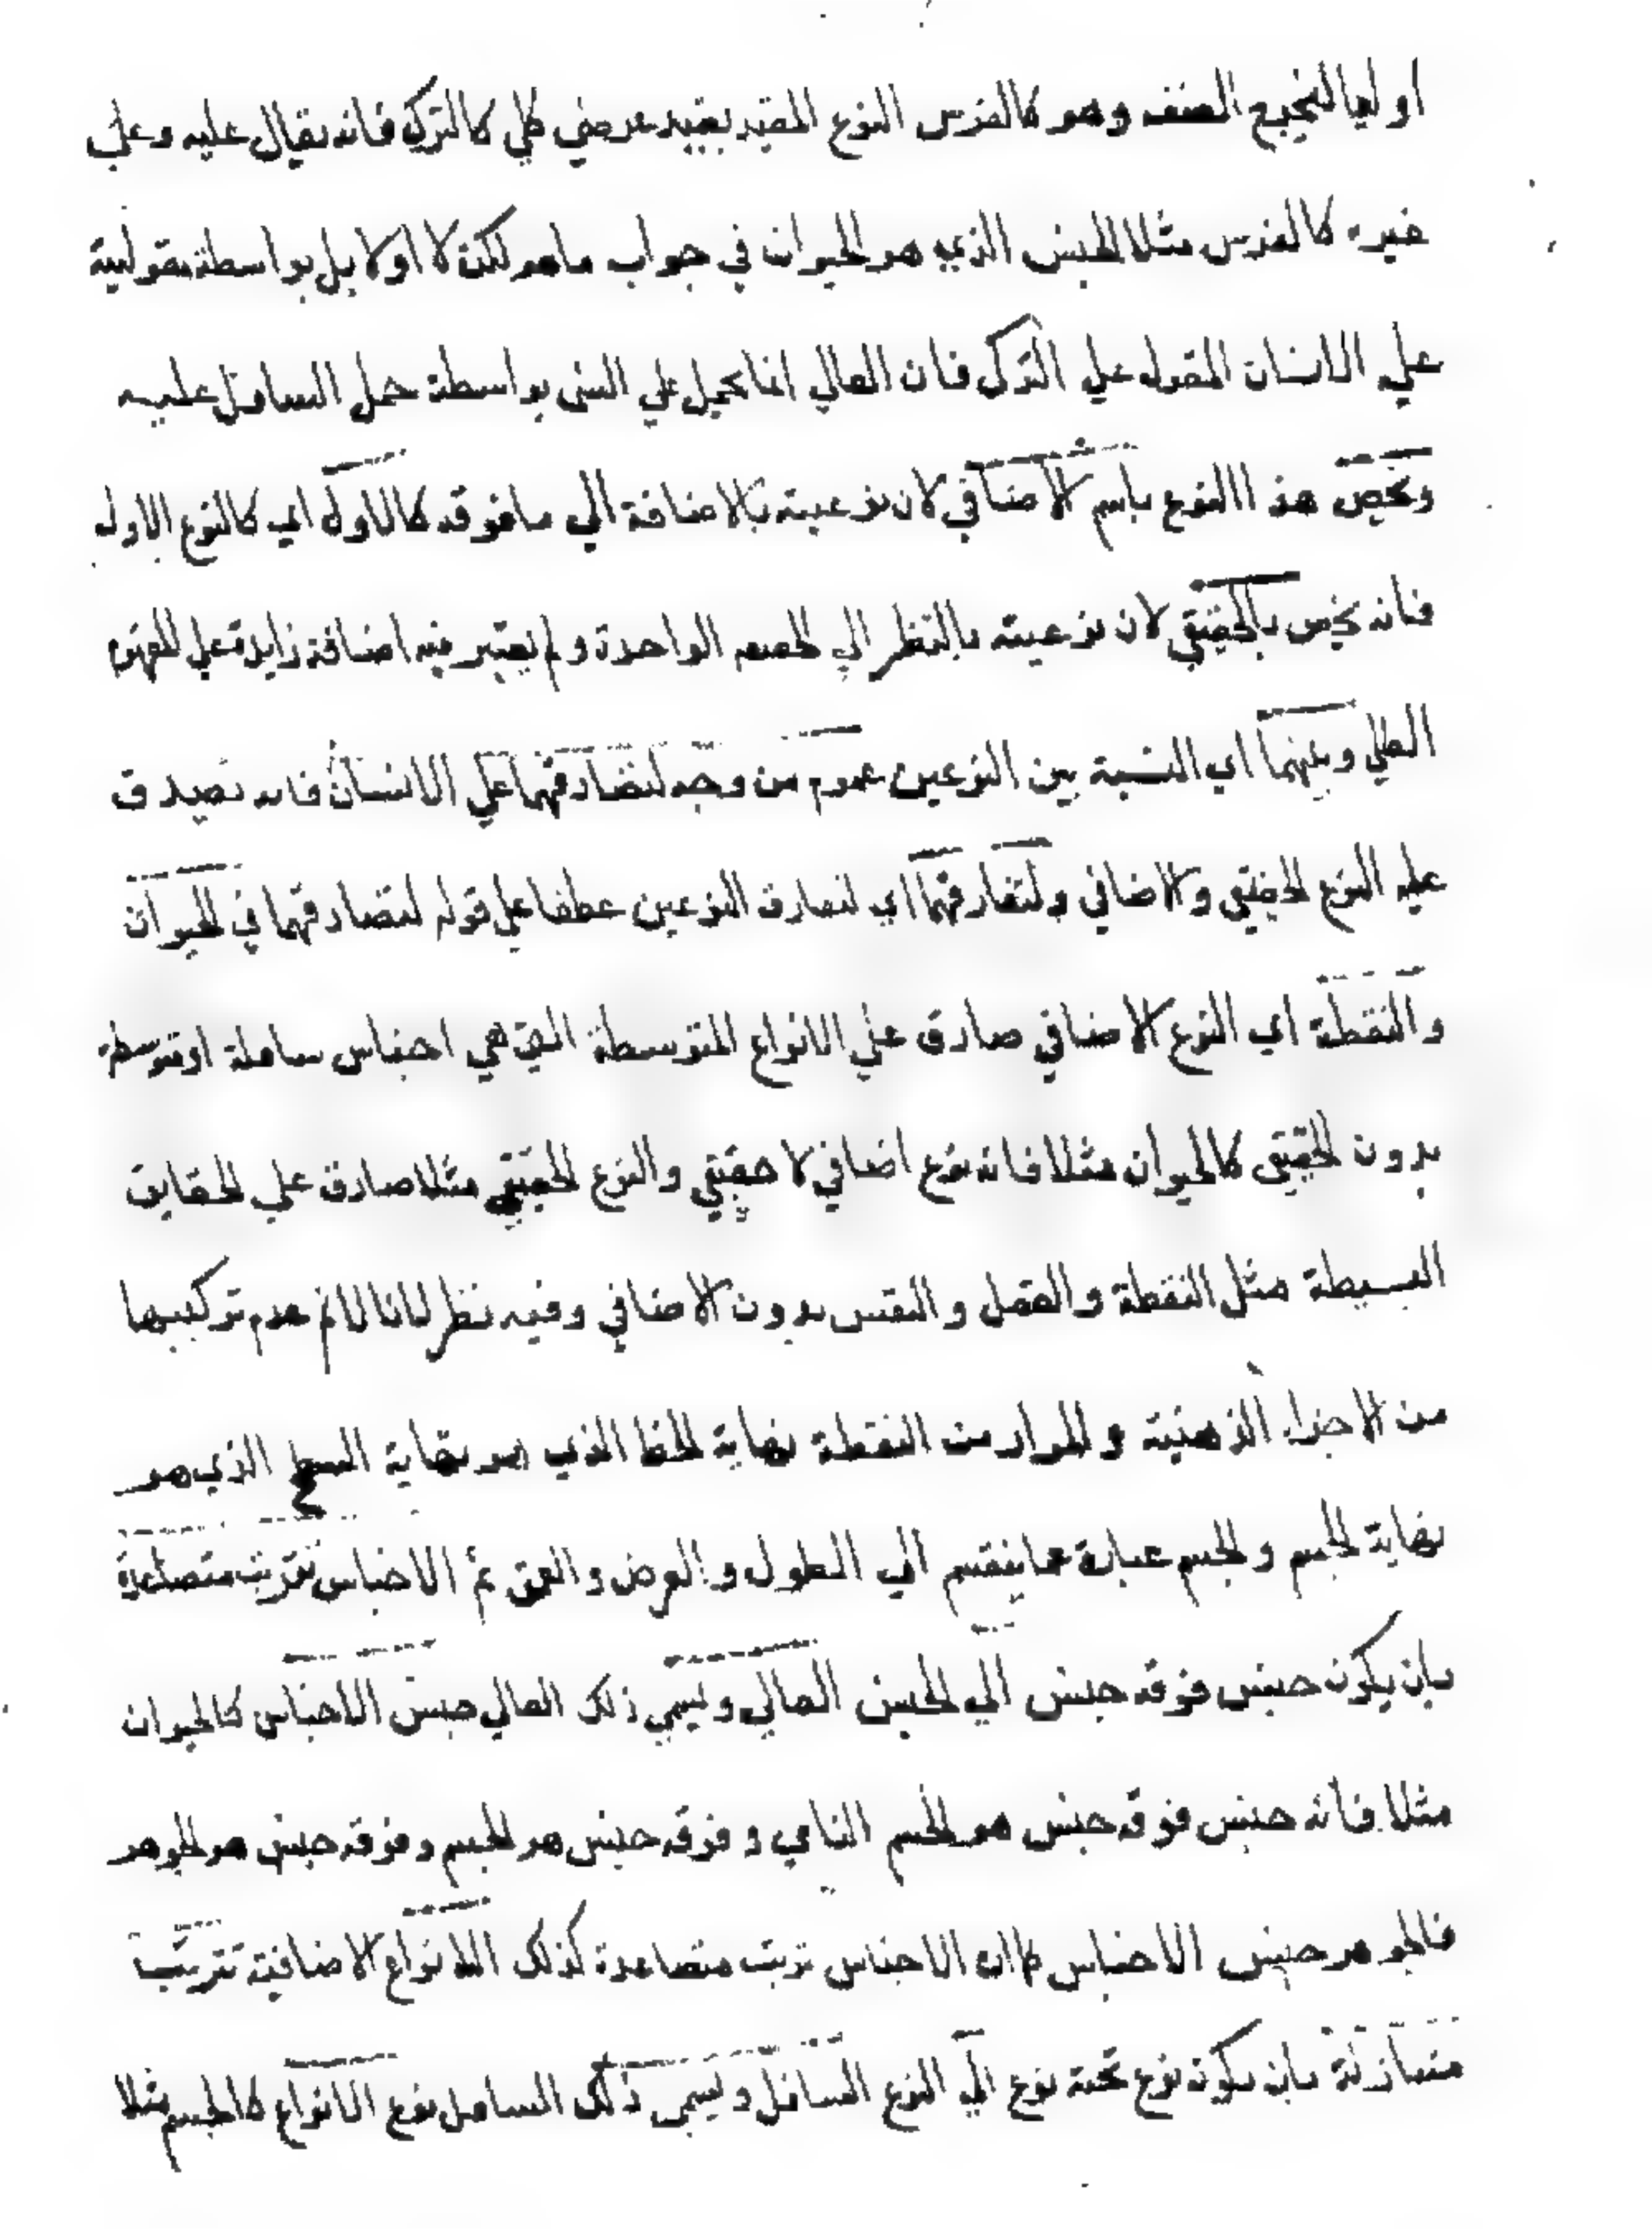 اوليا ليخرج الصنف وهو كالفرس النوع المقيد بقيد عرضي كلي كالترك فانه يقال عليه وعلي
غيره كالفرس مثلا الجنس الذي هو الحيوان في جواب ما هو لكن لا اولا بل بواسطة مقولية
علي الانسان المقول علي الترك فان العالي انما يحمل علي الشي بواسطة حمل السافل عليه
ويخص هذا النوع باسم الاضافي لان نوعيته بالاضافة الي ما فوقه كالاول اي كالنوع الاول
فانه يخص بالحقيقي لان نوعيته بالنظر الي الواحدة ولم يعتبر فيه اضافة زايدة علي
وبينهما اي النسبة بين النوعين عموم من وجه لتصادقهما علي الانسان فانه يصدق
عليه النوع الحقيقي والاضافي ولتفارقهما اي لتفارق النوعين عطفا علي قوله لتصادقهما في الحيوان
والنقطة اي النوع الاضافي صادق علي الانواع المتوسطة التي هي اجناس سافلة او متوسطة
بدون الحقيقي كالحيوان مثلا فانه نوع اضافي لا حقيقي والنوع الحقيقي مثلا صادق علي الحقايق
البسيطة مثل النقطة والعقل والنفس بدون الاضافي وفيه نظر لانا لانم عدم تركيبها
من الاجزاء الذهنية والمراد من النقطة نهاية الخط الذي هو نهاية السطح الذي هو
نهاية الجسم والجسم عبارة عما ينقسم الي الطول والعرض والعمق ثم الاجناس تترتب متصاعدة
بان يكون جنس فوقه جنس الي الجنس العالي ويسمي ذلك العالي جنس الاجناس كالحيوان
مثلا فانه جنس فوقه جنس هو الجسم النامي وفوقه جنس هو الجسم وفوقه جنس هو الجوهر
فالجوهر جنس الاجناس كما ان الاجناس ترتبت متصاعدة كذلك الانواع الاضافية تترتب
متنازلة بان يكون نوع تحته نوع الي النوع السافل ويسمي ذلك السافل نوع الانواع كالجسم مثلا